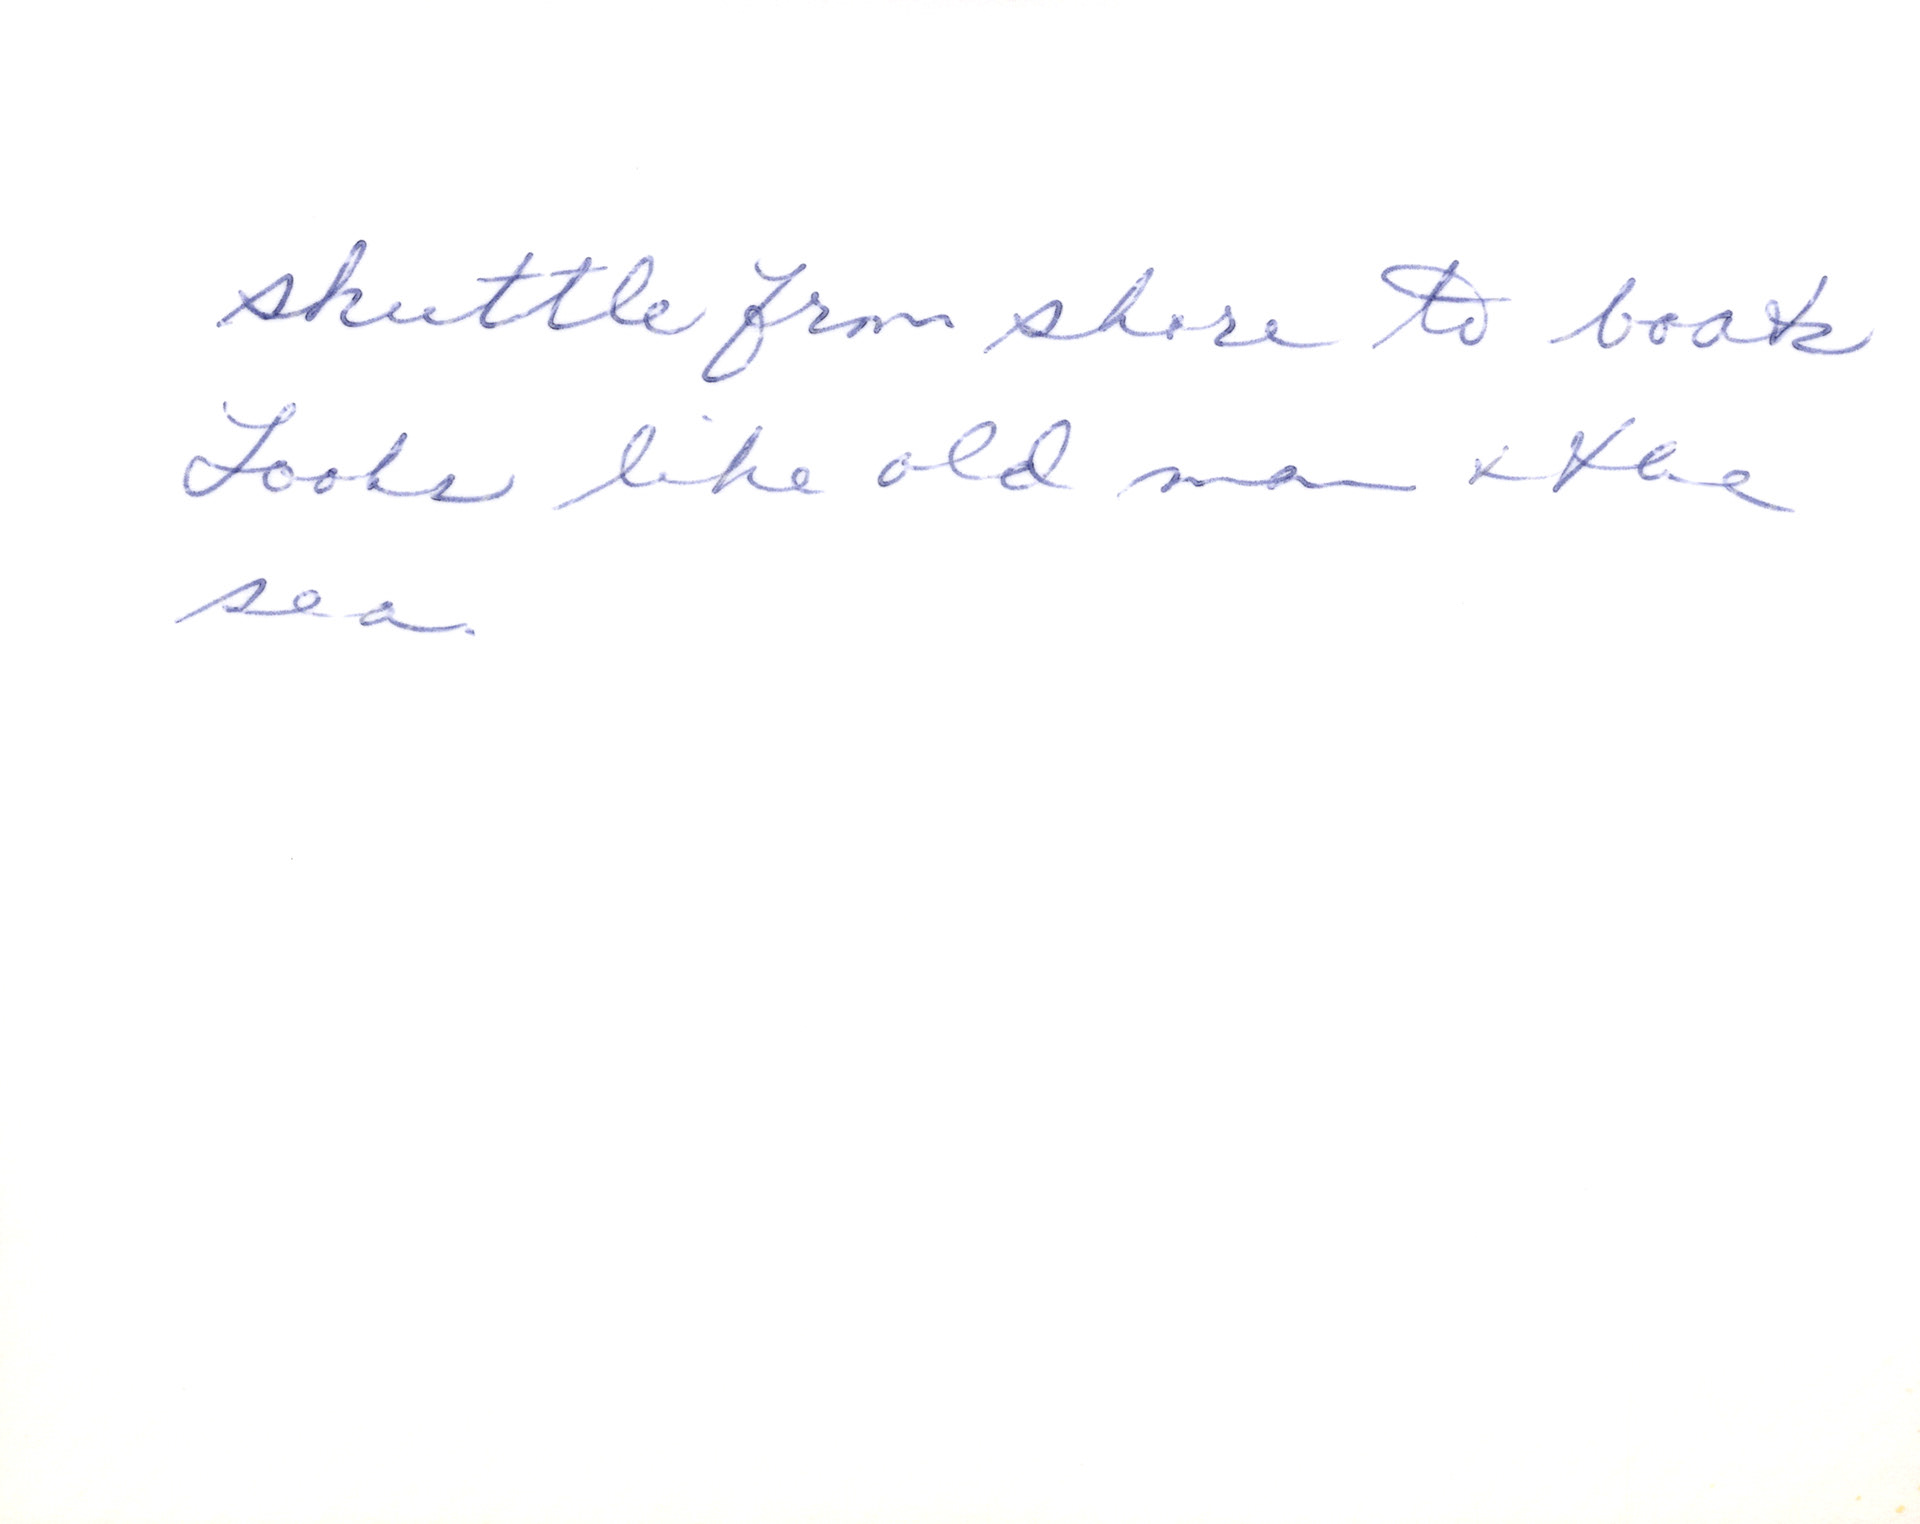 shuttle from shore to boats
Looks like old man & the
sea.